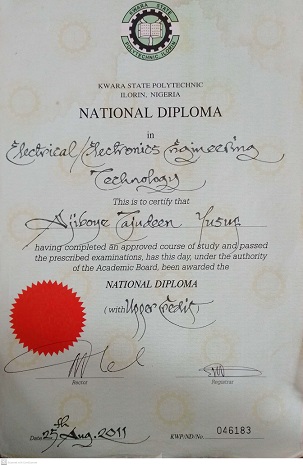 KWARA STATE
POLYTECHNIC ILORIN
KWARA STATE POLYTECHNIC
ILORIN, NIGERIA
NATIONAL DIPLOMA
in
Electrical/Electronics Engineering
Technology
This is to certify that
Ajiboye Tajudeen Yusuf
having completed an approved course of study and passed
the prescribed examinations, has this day, under the authority
of the Academic Board, been awarded the
NATIONAL DIPLOMA
(with Upper Credit)
Rector
Registrar
Date 25th Aug. 2011
KWP/ND/No 046183